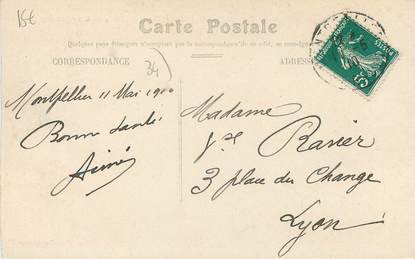 15€
Carte Postale
Quelques pays étrangers n'acceptent pas la correspondance de ce côté, se renseigner
CORRESPONDANCE
ADRESSE
34
Montpellier 11 Mai
Bonne santé
Aimé
Madame
Vve Ravier
3 place du Change
Lyon